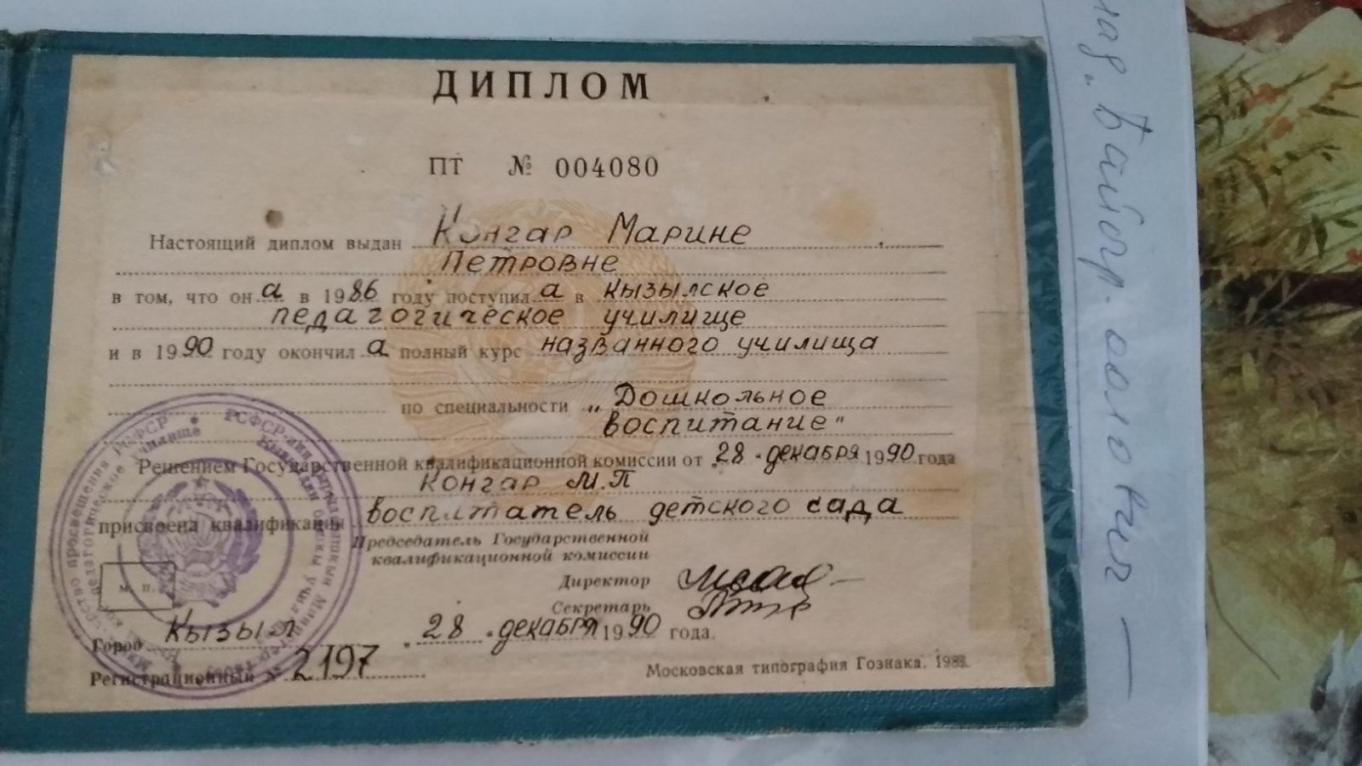 ДИПЛОМ
ПТ № 004080
Настоящий диплом выдан Конгар Марине
Петровне
в том, что он а в 1986 году поступил а в Кызылское
педагогическое училище
и в 1990 году окончил а полный курс названного училища
по специальности „Дошкольное
воспитание"
Решением Государственной квалификационной комиссии от „28 " декабря 1990 года
Конгар М.П
присвоена квалификация воспитатель детского сада
Председатель Государственной
квалификационной комиссии
Директор
Секретарь
м. п.
Город Кызыл "28 " декабря 1990 года.
Регистрационный № 2197
Московская типография Гознака. 1988.
просвещения РСФСР
педагогическое училище